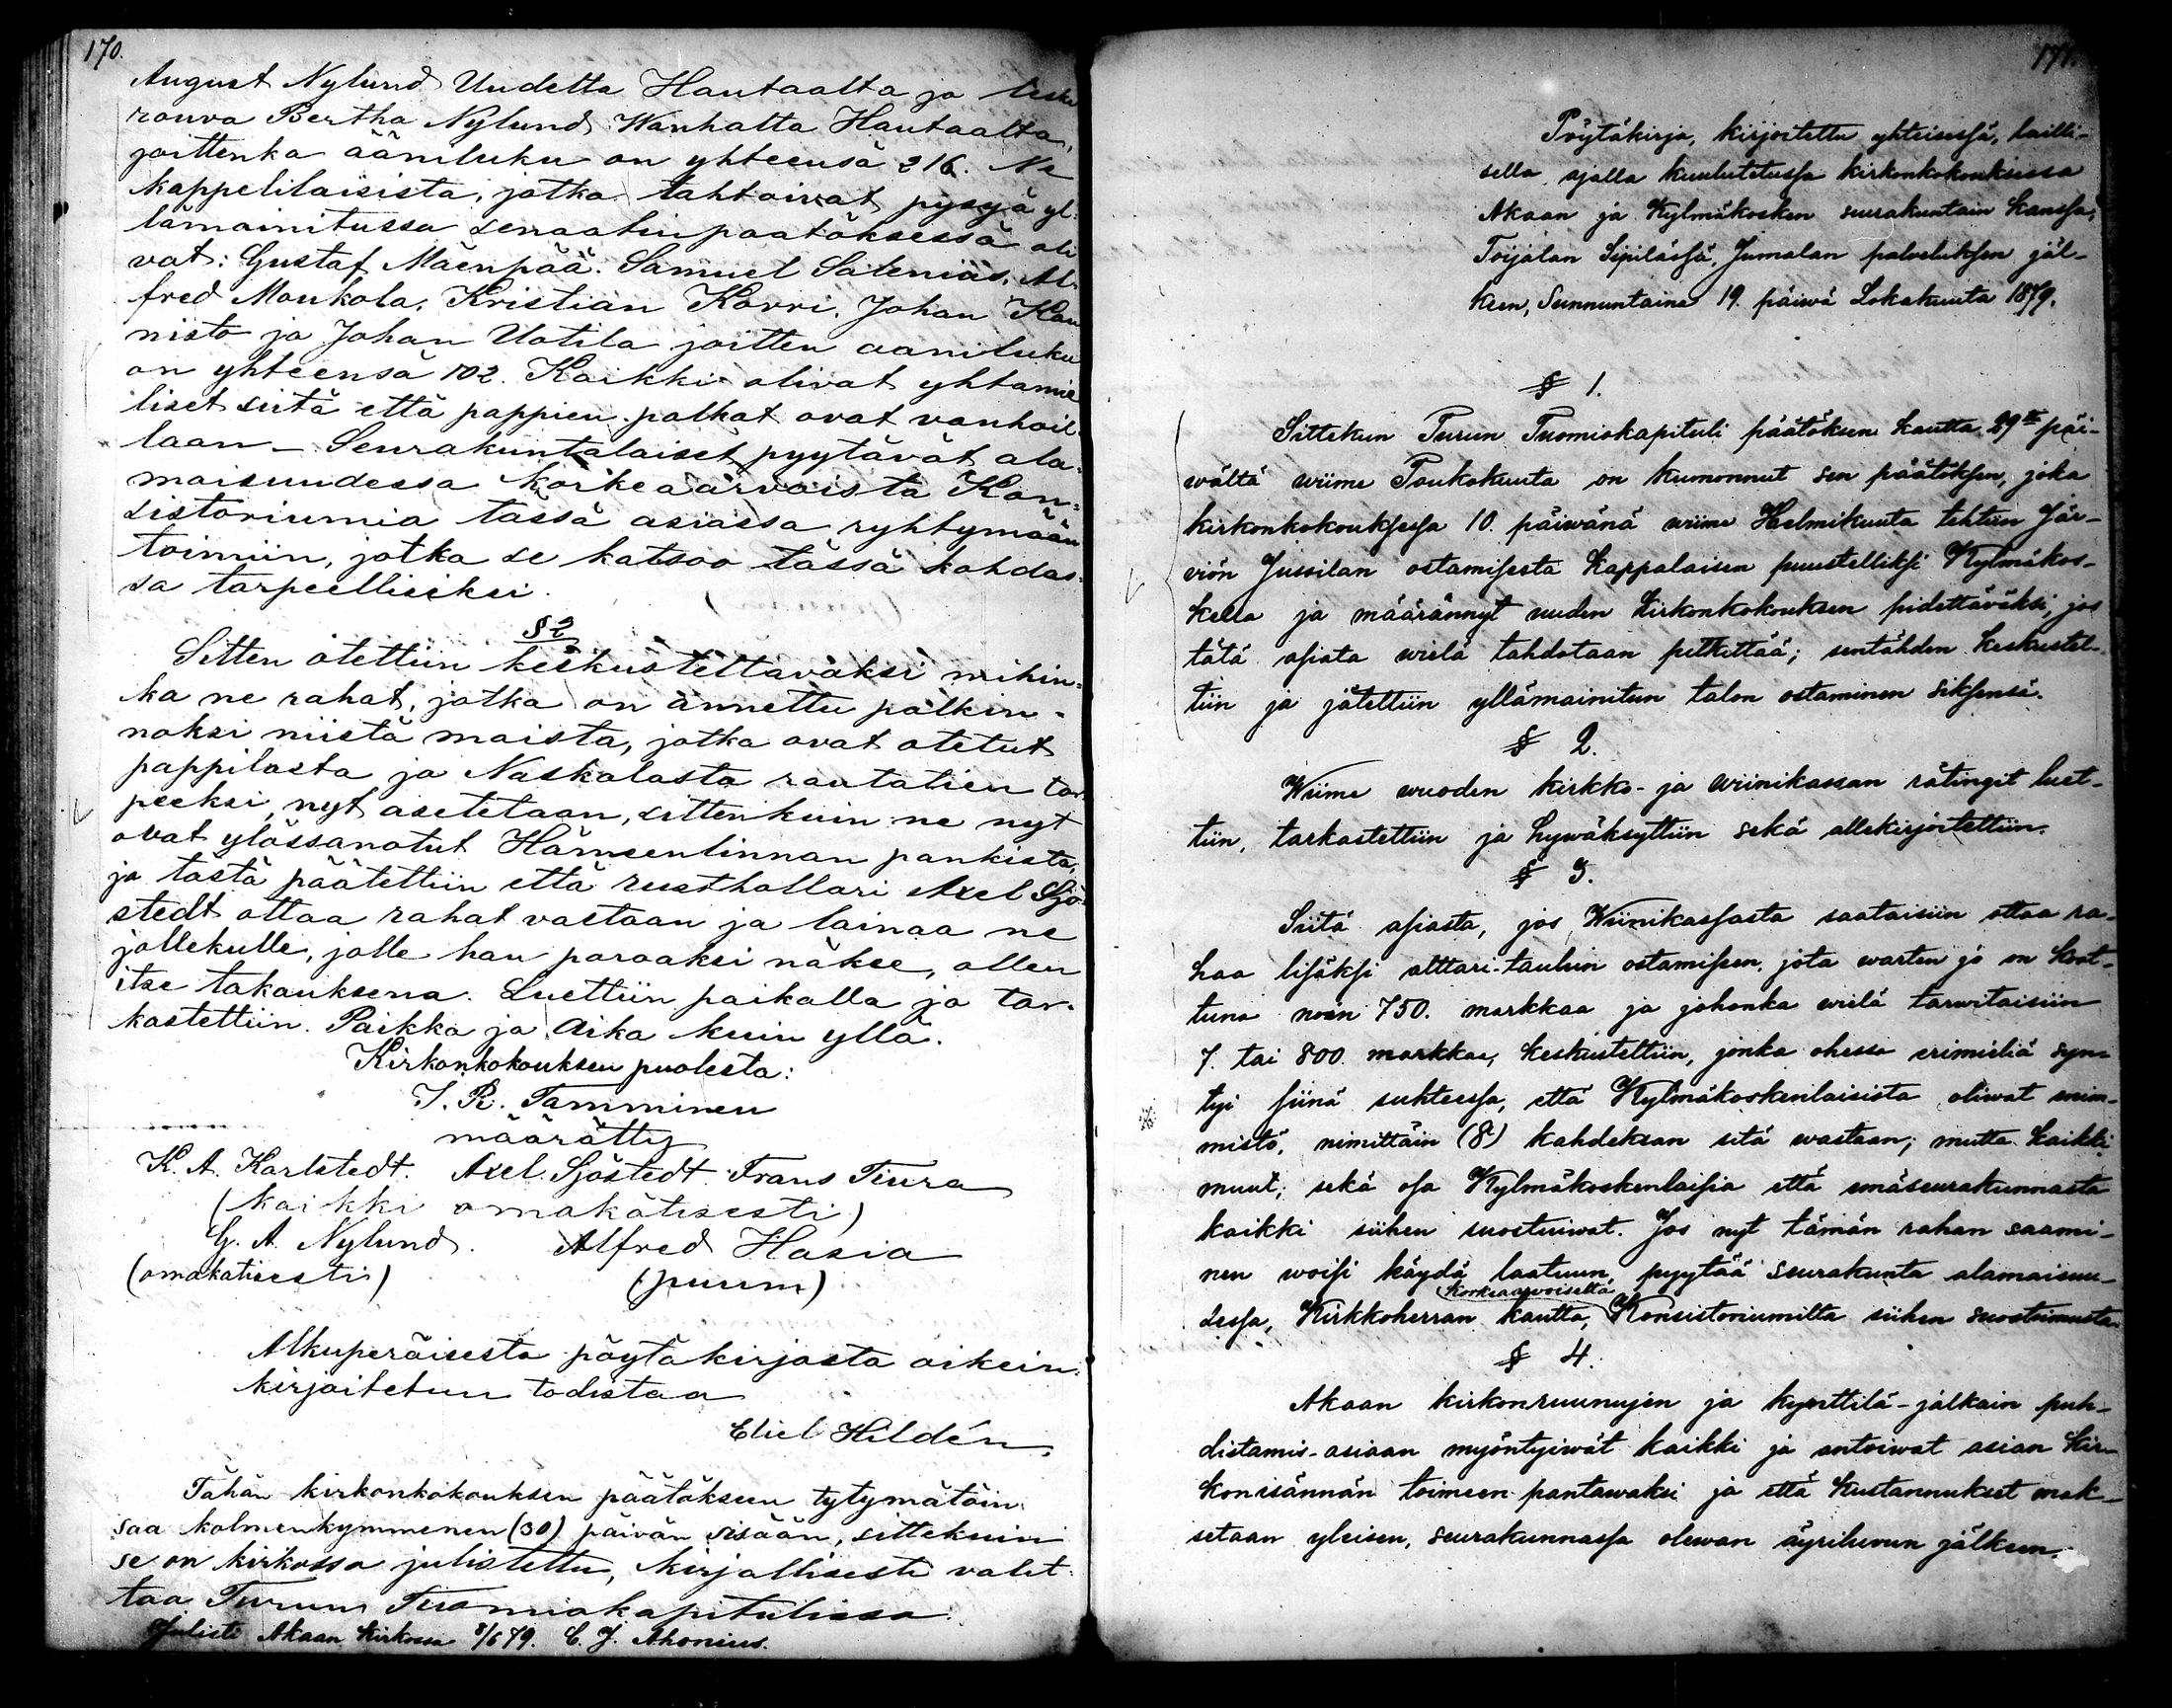 170.
August Nylund Uudelta Hautaalta ja leski
rouva Bertha Nylund Wanhalta Hautaalta,
joittenka ääniluku on yhteensä 216. Ne
kappelilaisista, jotka tahtoivat pysyä yl-
lämainitussa senaatin paatöksessä oli
vat: Gustaf Mäenpää. Samuel Satenias. Al-
fred Moukola, Kristian Korri, Johan Kau
nisto ja Johan Uotila joitten ääniluku
on yhteensä 102. Kaikki olivat yhtämie
liset siitä että pappien palkat ovat vanhoil-
laan – Seurakuntalaiset pyytävät ala-
maisuudessa korkeaarvoista Kon-
sistoriumia tässä asiassa ryhtymään
toimiin, jotka se katsoo tässä kohdas-
sa tarpeellisiksi.
§ 2
Sitten otettiin keskusteltavaksi mihin-
kä ne rahat, jotka on annettu palkin-
noksi niistä maista, jotka ovat otetut
pappilasta ja Naskalasta rautatien tar-
peeksi, nyt asetetaan, sittenkuin ne nyt
ovat ylössanotut Hämeenlinnan pankista,
ja tästä päätettiin että rusthollari Axel Sjö-
stedt ottaa rahat vastaan ja lainaa ne
jollekulle, jolle hän paraaksi näkee, ollen
itse takauksena. Luettiin paikalla ja tar-
kastettiin. Paikka ja Aika kuin yllä.
Kirkonkokouksen puolesta:
I. R. Tamminen
määrätty
K. A. Karlstedt. Axel Sjöstedt. Frans Tiura
(kaikki omakätisesti)
G. A. Nylund. Alfred Hasia
(omakatisesti) (puum)
Alkuperäisestä pöytäkirjasta oikein
kirjoitetun todistaa
Eliel Hildén.
Tähän kirkonkokouksen päätökseen tytymätöin
saa kolmenkymmenen (30) päivän sisään, sittekuin
se on kirkossa julistettu, kirjallisesti valit-
taa Turun Tuomiokapitulissa.
Julisti Akaan kirkossa 8/6 79. C. J. Ahonius.
171.
Pöytäkirja, kirjoitettu yhteisessä, lailli-
sella ajalla kuulutetussa kirkonkokouksessa
Akaan ja Kylmäkosken seurakuntain kanssa,
Toijalan Sipilässä, Jumalan palveluksen jäl-
keen, Sunnuntaina 19. päiwä Lokakuuta 1879.
§ 1.
Sittekun Turun Tuomiokapituli päätöksen kautta 29 päi-
wältä wiime Toukokuuta on kumonnut sen päätöksen, joka
kirkonkokouksessa 10. päiwänä wiime Helmikuuta tehtiin Jär-
viön Jussilan ostamisesta Kappalaisen puustelliksi Kylmäkos-
kella ja määrännyt uuden kirkonkokouksen pidettäväksi, jos
tätä asiata wielä tahdotaan pitkittää; sentähden keskustel-
tiin ja jätettiin yllämainitun talon ostaminen siksensä.
§ 2.
Wiime wuoden kirkko- ja wiinikassan rätingit luet-
tiin, tarkastettiin ja hywäksyttiin sekä allekirjoitettiin.
§ 3.
Siitä asiasta, jos Wiinikassasta saataisiin ottaa ra-
haa lisäksi alttari-taulun ostamiseen, jota warten jo on koot-
tuna noin 750. markkaa ja johonka wielä tarwitaisiin
7. tai 800. markkaa, keskusteltiin, jonka ohessa erimieliä syn-
tyi siinä suhteessa, että Kylmäkoskenlaisista oliwat enim-
mistö, nimittäin (8) kahdeksan sitä wastaan; mutta kaikki
muut, sekä osa Kylmäkoskenlaisia että emäseurakunnasta
kaikki siihen suostuiwat. Jos nyt tämän rahan saami-
nen woisi käydä laatuun pyytää seurakunta alamaisuu-
korkeaarvoiselta
dessa, Kirkkoherran kautta, Konsistoriumilta siihen suostumusta.
§ 4.
Akaan kirkonruunujen ja kynttilä-jalkain puh-
distamis-asiaan myöntyiwät kaikki ja antoiwat asian kir-
konisännän toimeen pantawaksi ja että kustannukset mak-
setaan yleisen, seurakunnassa olewan äyriluvun jälkeen.